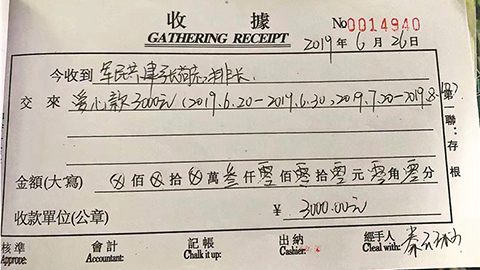 收據
GATHERING RECEIPT
No 0014940
2019年6月26日
今收到 军民共建张
交來 爱心款3000元(2019.6.20-2019.6.30,2019.7.20-2019.8.
第一聯:存根
金額(大寫) ⊗佰⊗拾⊗萬叁仟零佰零拾零元零角零分
收款單位(公章) ¥ 3000.00元
核準 會計 記帳 出納 經手人 秦
Apprope: Accountant: Chalk it up: Cashier: Cleal with: